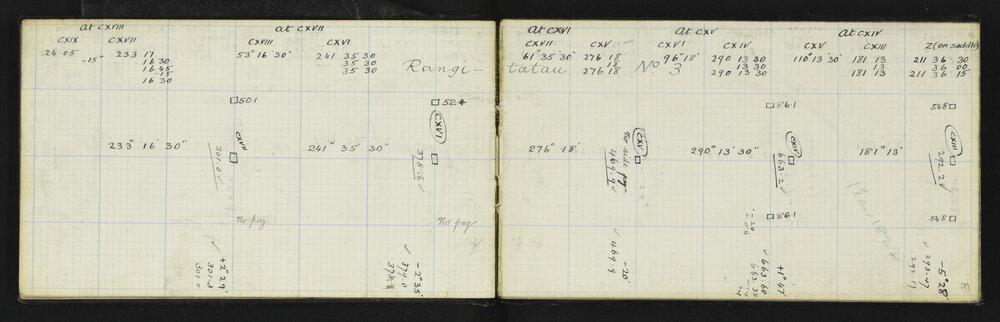 at CXVIII
CXIX CXVII
24 05 233 17
-15" 16 30
16 45
-15
16 30
at CXVII
CXVIII CXVI
53° 16' 30" 241 35 30
35 30
35 30
Rangi-
□ 501
□ 524
CXVII
CXVI
233° 16' 30"
241° 35' 30"
301.0 ✓
378.6 ✓
No peg
No peg
✓
+2° 29'
301.3
301.0
✓
-2° 35'
379.0
at CXVI
CXVII CXV
61° 35' 30" 276 18
18
276 18
at CXV
CXVI CXIV
96° 18' 290 13 30
13 30
290 13 30
at CXIV
CXV CXIII Z (on saddle)
110° 13' 30" 181 13 211 36 30
13 36 00
181 13 211 36 15
tatau No 3
□ 861
548 □
CXV
CXIV
CXIII
276° 18'
290° 13' 30"
181° 13'
No side peg
469.9 ✓
663.2 ✓
292.2 ✓
□ 861
548 □
-20'
✓ 469.9
-20'
+1° 47'
✓ 663.68
663.35
-5° 28'
✓ 293.47
8